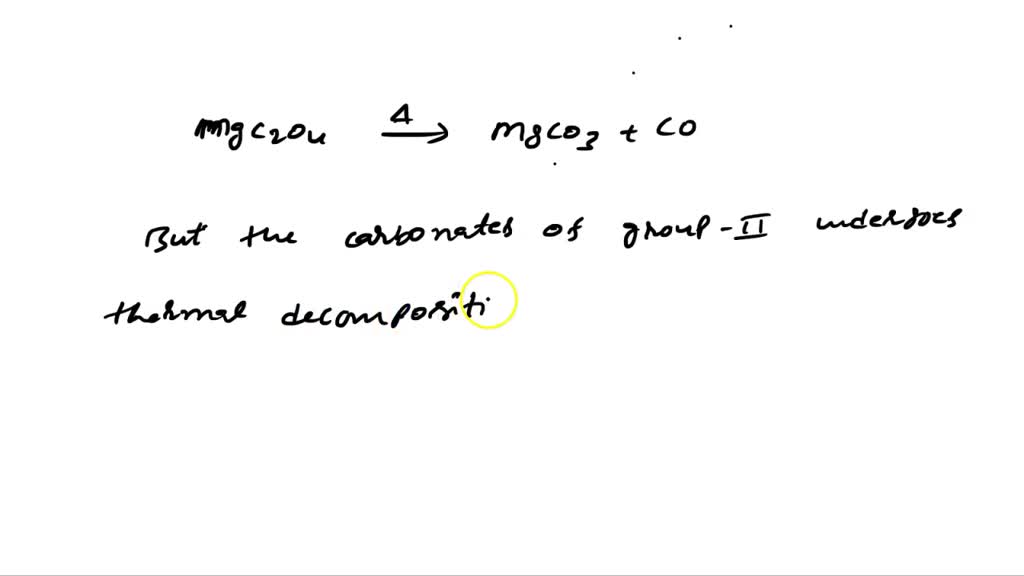 MgC2O4 Δ→ MgCO3 + CO
But the carbonates of group-II undergoes
thermal decompositi